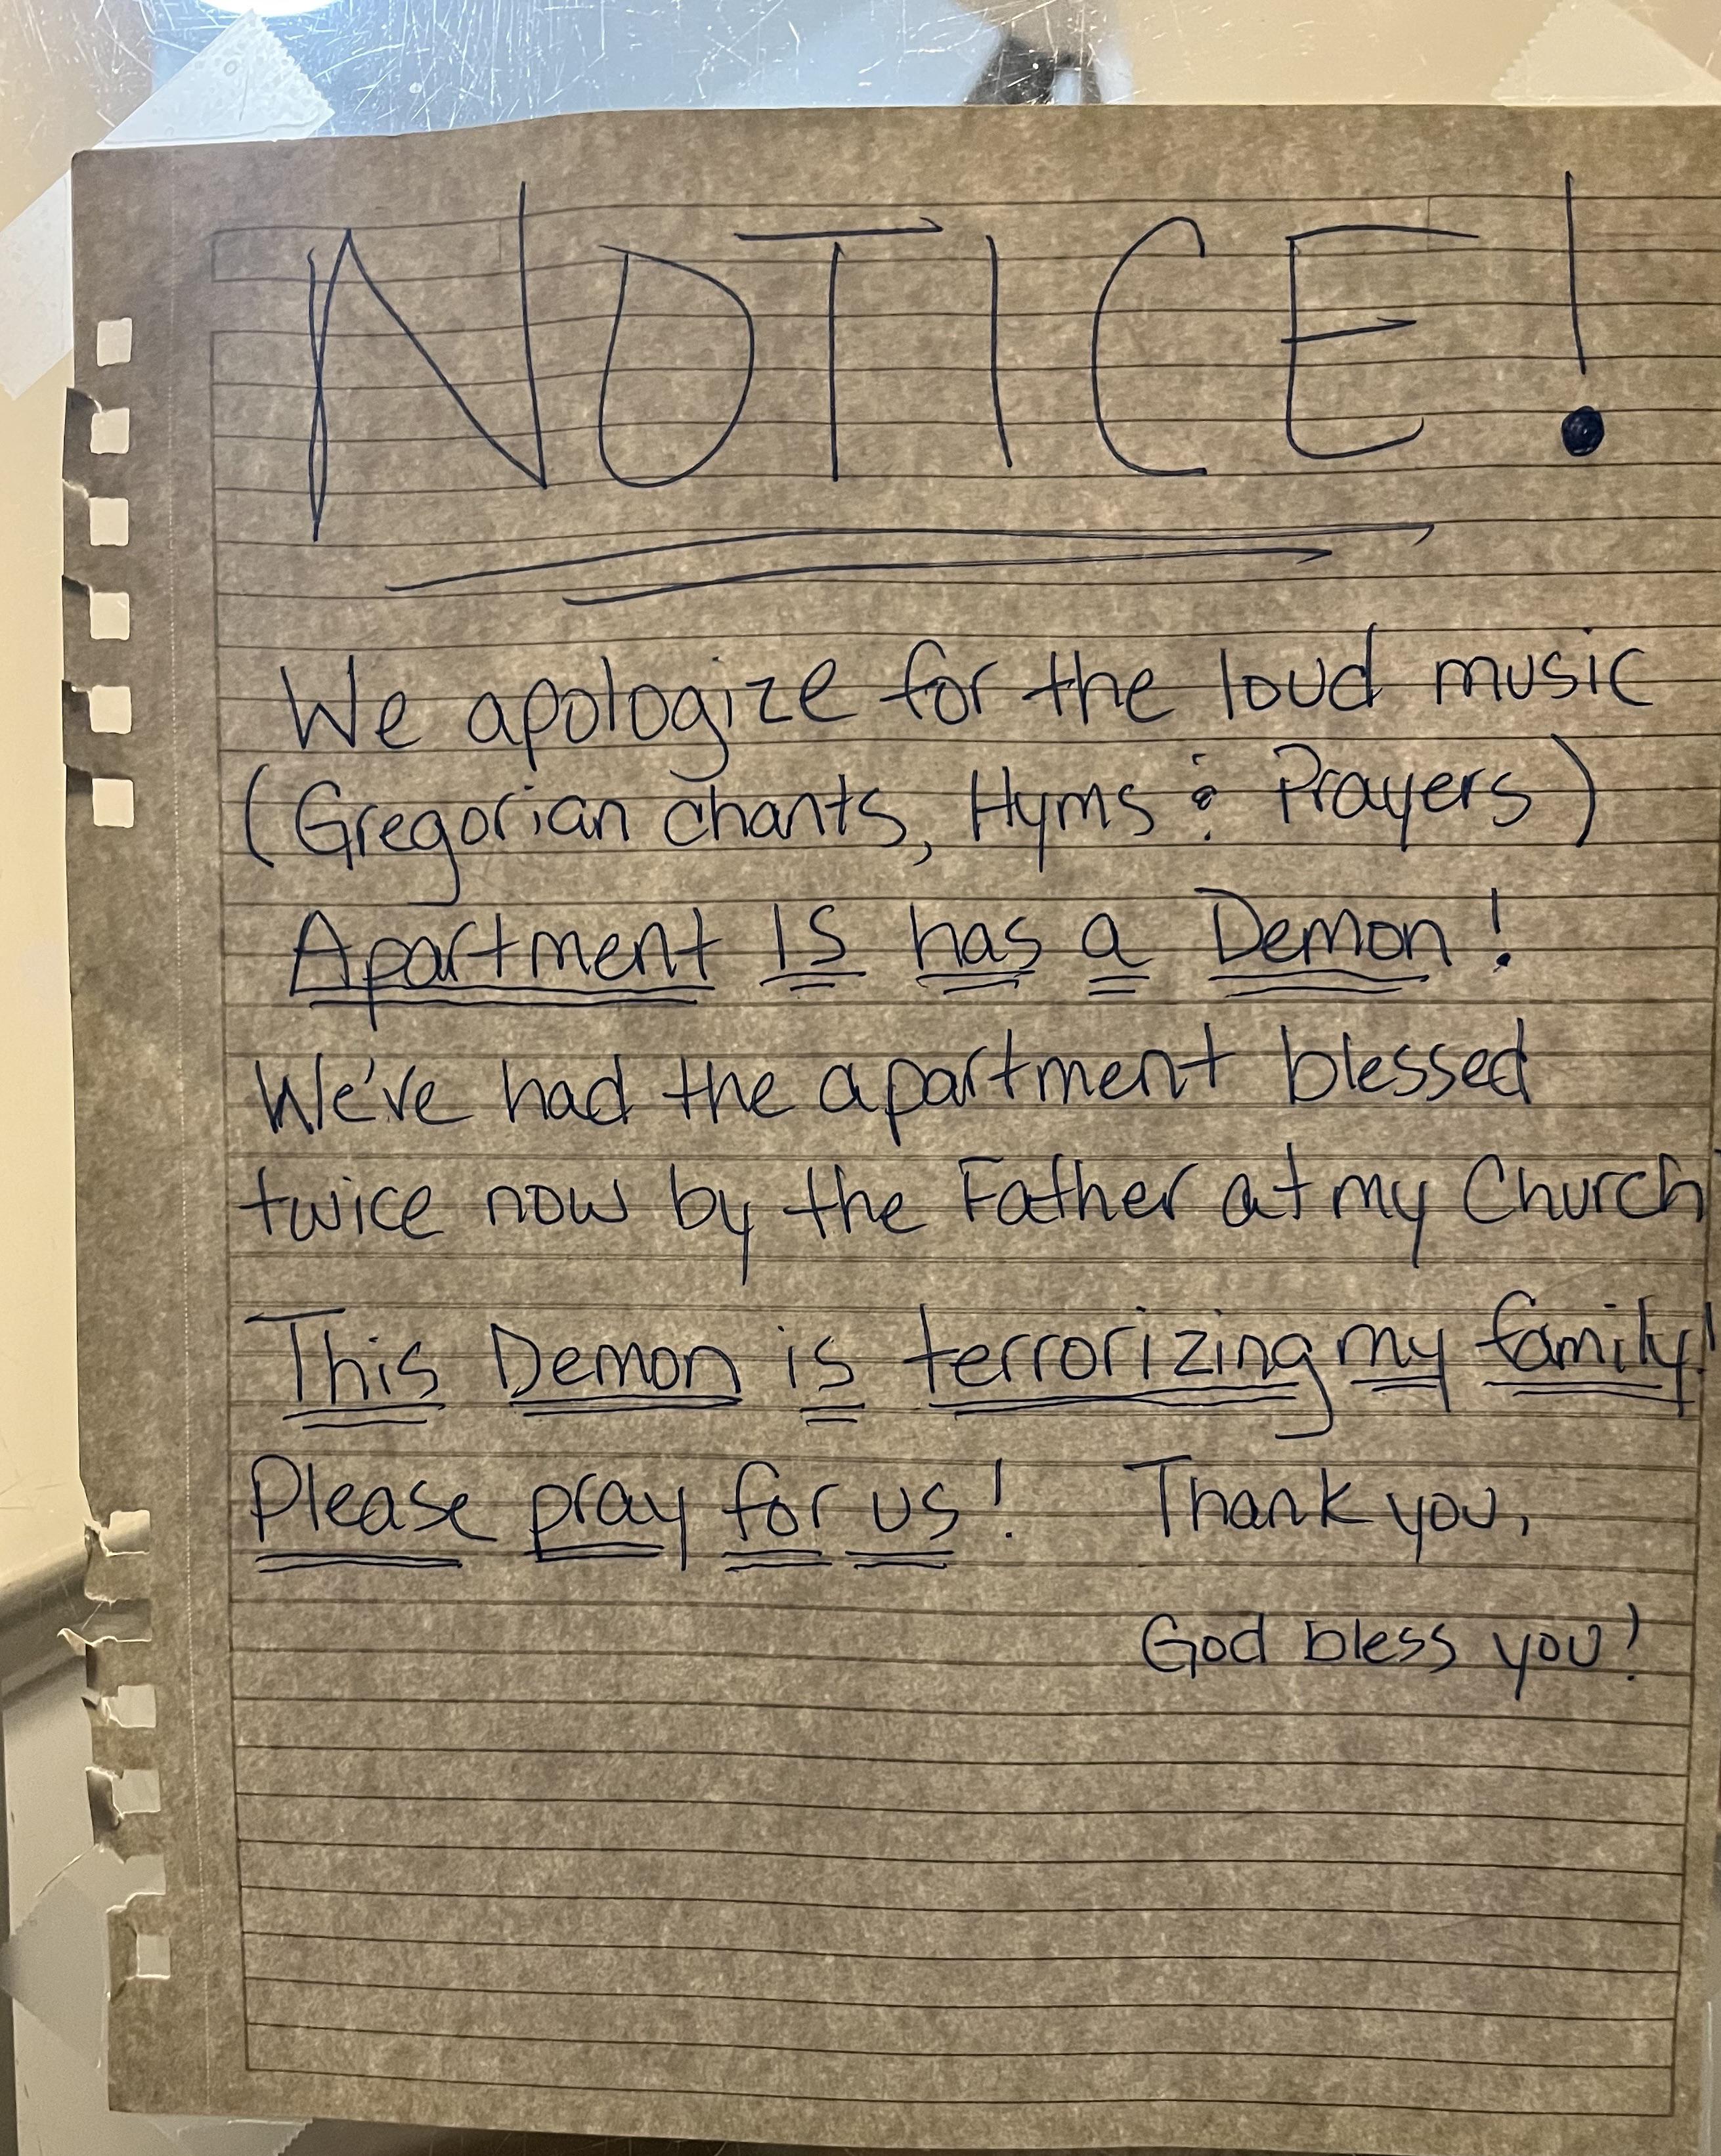 NOTICE!
We apologize for the loud music
(Gregorian chants, Hyms & Prayers)
Apartment 15 has a Demon!
We've had the apartment blessed
twice now by the Father at my Church
This Demon is terrorizing my family!
Please pray for us! Thank you,
God bless you!